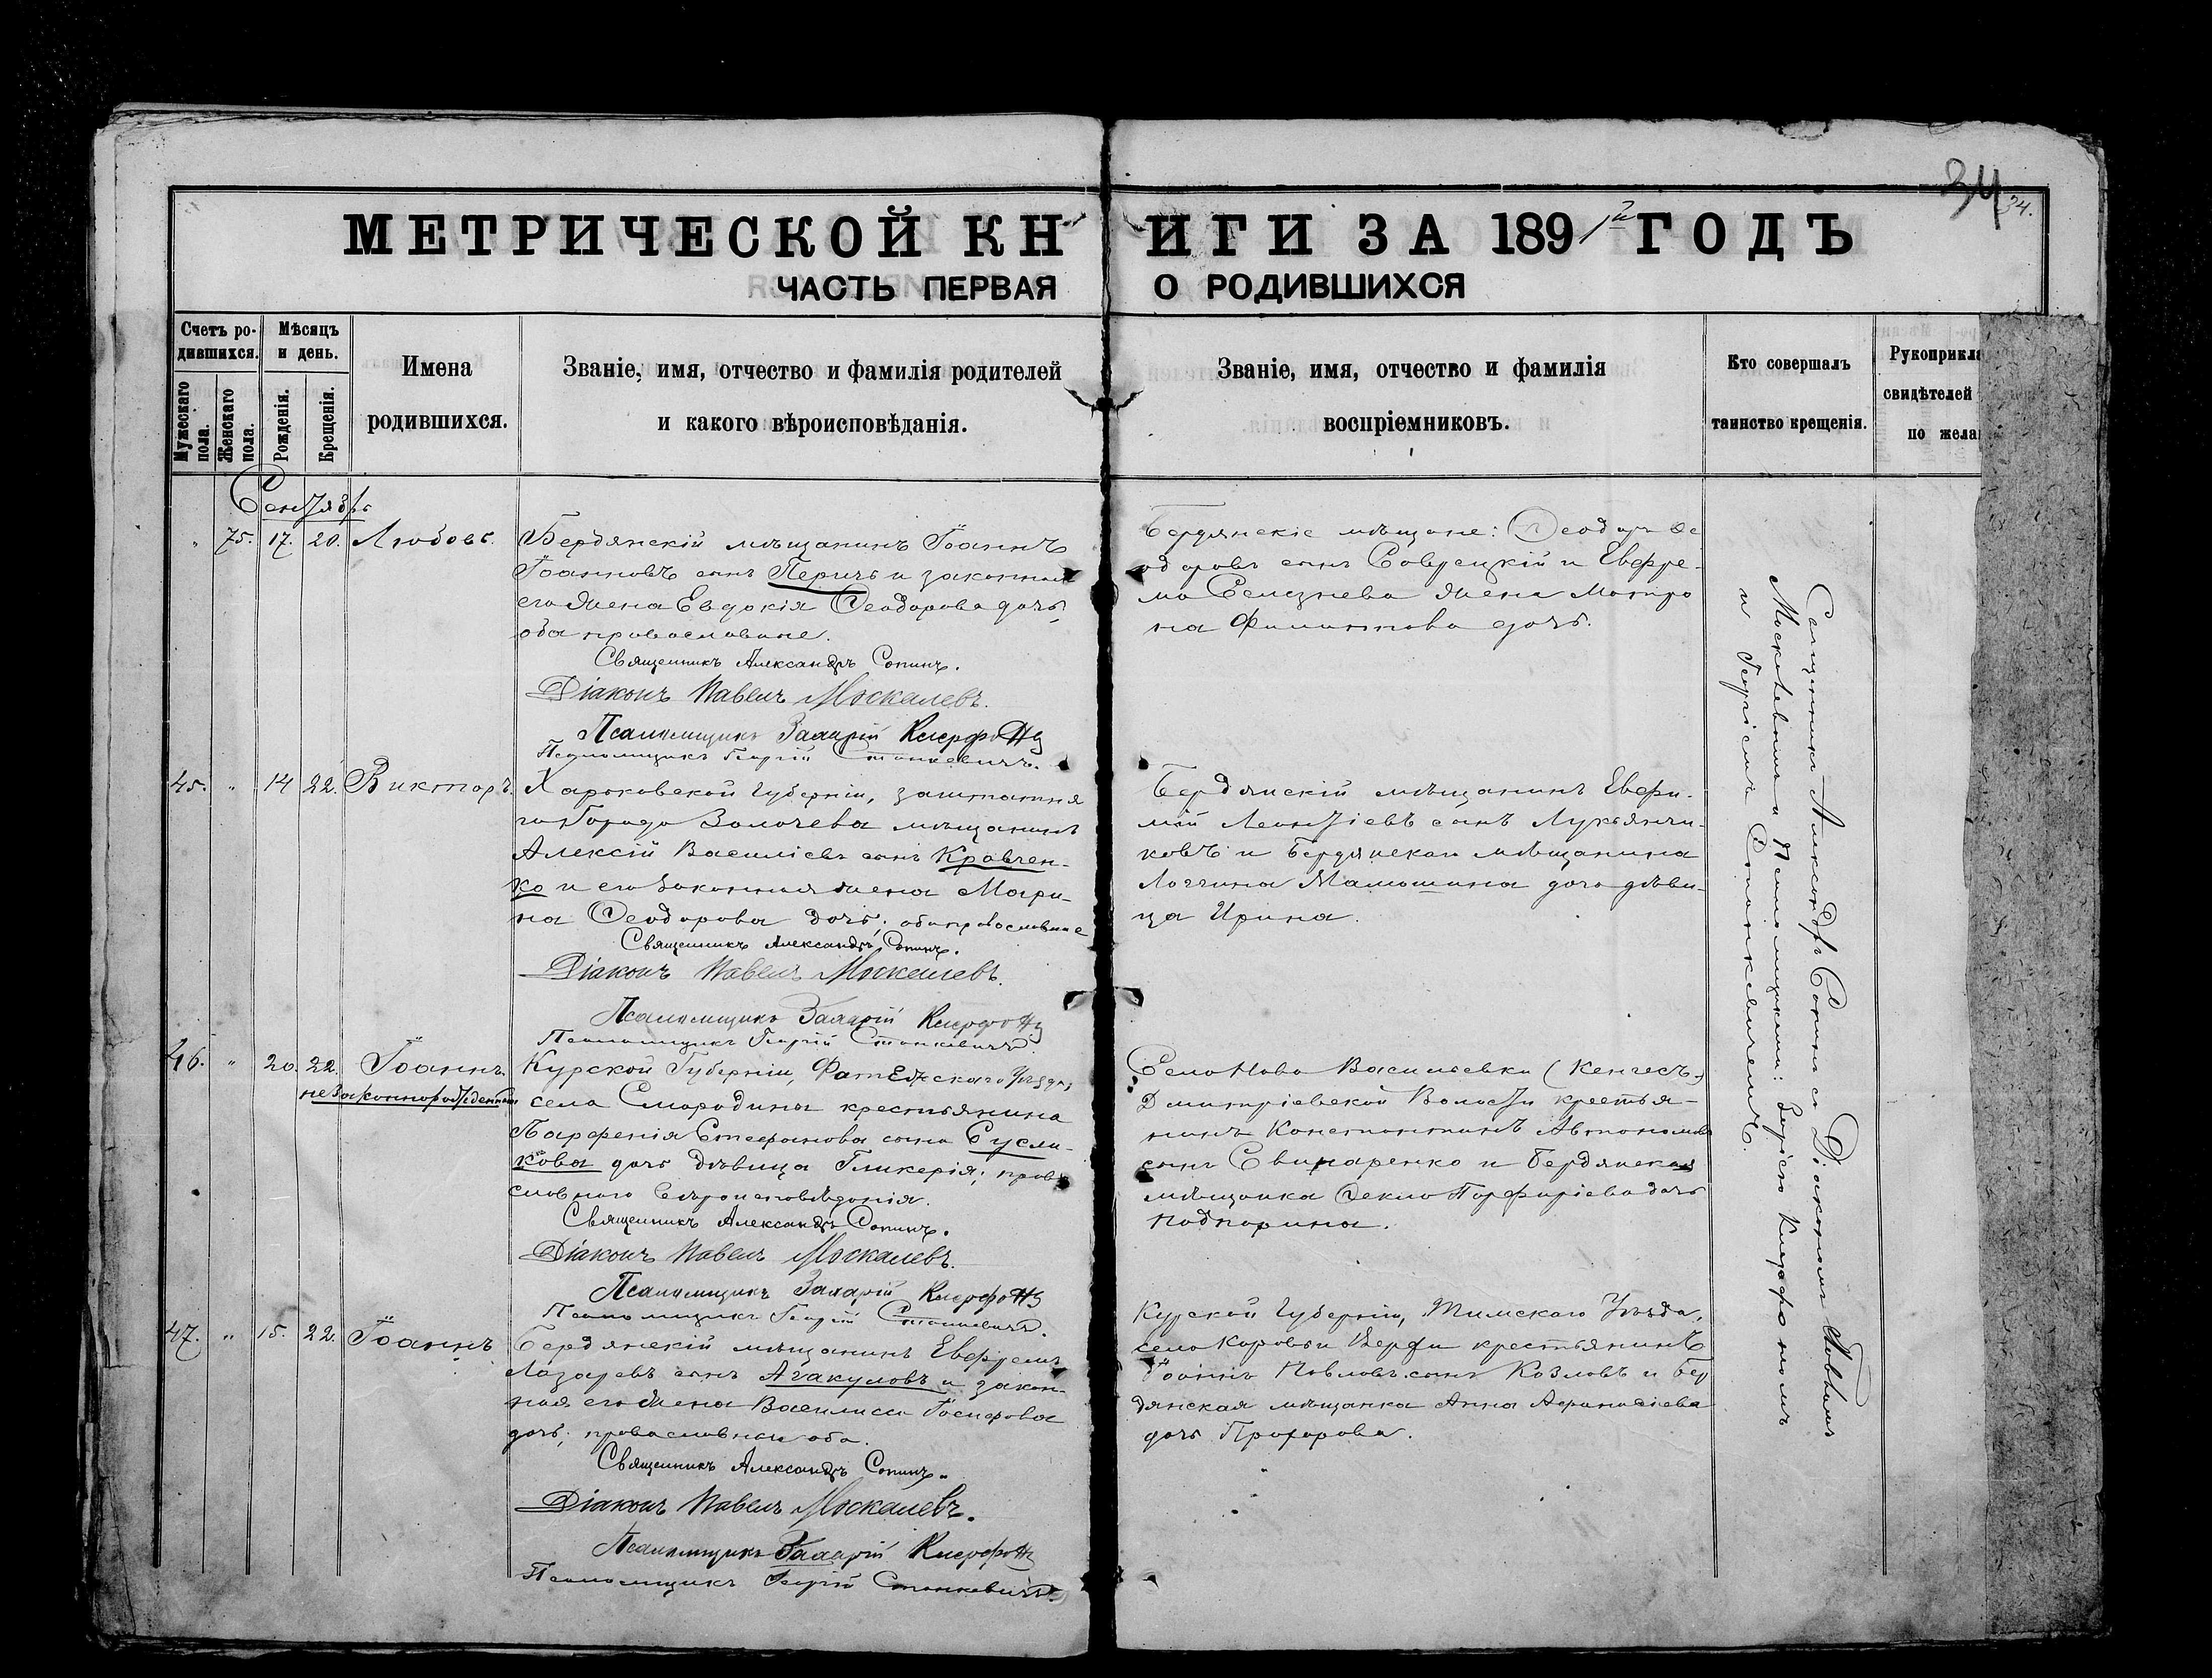 34
34.
МЕТРИЧЕСКОЙ КНИГИ ЗА 1891й ГОДЪ
ЧАСТЬ ПЕРВАЯ О РОДИВШИХСЯ
Счетъ ро-
дившихся.
Мужескаго пола.
Женскаго пола.
Мѣсяцъ
и день.
Рожденія.
Крещенія.
Имена
родившихся.
Званіе, имя, отчество и фамилія родителей
и какого вѣроисповѣданія.
Званіе, имя, отчество и фамилія
воспріемниковъ.
Кто совершалъ
таинство крещенія.
Рукоприкла
свидѣтелей
по жела
Сентябрь
" 75. 17. 20. Любовь.
Бердянскій мѣщанинъ Іоаннъ
Іоанновъ сынъ Перичъ и законная
его жена Евдокія Ѳеодорова дочь,
оба православные.
Священникъ Александръ Сопинъ.
Діаконъ Павелъ Москалевъ.
Псаломщикъ Захарій
Псаломщикъ Георгій Станкевичъ.
Бердянскіе мѣщане: Ѳеодоръ Ѳе
одоровъ сынъ Саврецкій и Евфре-
ма Селезнева жена Матро
на Филиппова дочь.
45. " 14 22. Викторъ.
Харьковской Губерніи, заштатна
го города Золочева мѣщанинъ
Алексій Василіевъ сынъ Кравчен-
ко и его законная жена Мари-
на Ѳеодорова дочь; оба православные
Священникъ Александръ Сопинъ.
Діаконъ Павелъ Москалевъ.
Псаломщикъ Захарій
Псаломщикъ Георгій Станкевичъ.
Бердянскій мѣщанинъ Евфи-
мій Леонтіевъ сынъ Лукьянчи-
ковъ и Бердянскаго мѣщанина
Логгина Малюшина дочь дѣви-
ца Ирина.
46. " 20. 22. Іоаннъ.
незаконнорожденный
Курской Губерніи, Фатежскаго Уѣзда,
села Смородины крестьянина
Парфенія Стефанова сына Сусли-
кова дочь дѣвица Гликерія; право
славнаго вѣроисповѣданія.
Священникъ Александръ Сопинъ.
Діаконъ Павелъ Москалевъ.
Псаломщикъ Захарій
Псаломщикъ Георгій Станкевичъ.
Села Ново Васильевки (Кенгесъ)
Дмитріевской Волости крестья-
нинъ Константинъ Автономовъ
сынъ Свинаренко и Бердянская
мѣщанка Ѳекла Порфиріева дочь
Подпорина.
47. " 15. 22. Іоаннъ
Бердянскій мѣщанинъ Евфремъ
Лазаревъ сынъ Агакуловъ и закон-
ная его жена Василисса Іосифова
дочь; православные оба.
Священникъ Александръ Сопинъ.
Діаконъ Павелъ Москалевъ.
Псаломщикъ Захарій
Псаломщикъ Георгій Станкевичъ.
Курской Губерніи, Тимскаго Уѣзда,
села Коровьи Верхи крестьянинъ
Іоаннъ Павловъ сынъ Козловъ и Бер
дянская мѣщанка Анна Аѳанасіева
дочь Прохорова.
Священникъ Александръ Сопинъ съ Діакономъ Павломъ
Москалевымъ и Псаломщиками:
и Георгіемъ Станкевичемъ.